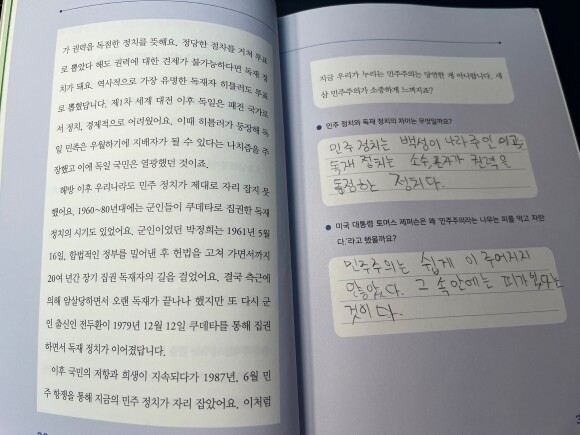 가 권력을 독점한 정치를 뜻해요. 정당한 절차를 거쳐 투표
로 뽑았다 해도 권력에 대한 견제가 불가능하다면 독재 정
치가 돼요. 역사적으로 가장 유명한 독재자 히틀러도 투표
로 뽑혔답니다. 제1차 세계 대전 이후 독일은 패전 국가로
서 정치, 경제적으로 어려웠어요. 이때 히틀러가 등장해 독
일 민족은 우월하기에 지배자가 될 수 있다는 나치즘을 주
장했고 이에 독일 국민은 열광했던 것이죠.
해방 이후 우리나라도 민주 정치가 제대로 자리 잡지 못
했어요. 1960~80년대에는 군인들이 쿠데타로 집권한 독재
정치의 시기도 있었어요. 군인이었던 박정희는 1961년 5월
16일, 합법적인 정부를 밀어낸 후 헌법을 고쳐 가면서까지
20여 년간 장기 집권 독재자의 길을 걸었어요. 결국 측근에
의해 암살당하면서 오랜 독재가 끝나나 했지만 또 다시 군
인 출신인 전두환이 1979년 12월 12일 쿠데타를 통해 집권
하면서 독재 정치가 이어졌답니다.
이후 국민의 저항과 희생이 지속되다가 1987년, 6월 민
주 항쟁을 통해 지금의 민주 정치가 자리 잡았어요. 이처럼
지금 우리가 누리는 민주주의는 당연한 게 아니랍니다. 새
삼 민주주의가 소중하게 느껴지죠?
민주 정치와 독재 정치의 차이는 무엇일까요?
민주 정치는 백성이 나라 주인 이고,
독재 정치는 소수 혼자가 권력을
독점한 정치다.
미국 대통령 토머스 제퍼슨은 왜 '민주주의라는 나무는 피를 먹고 자란
다.'라고 했을까요?
민주주의는 쉽게 이루어지지
않았다. 그 속 안에는 피가 있다는
것이다.